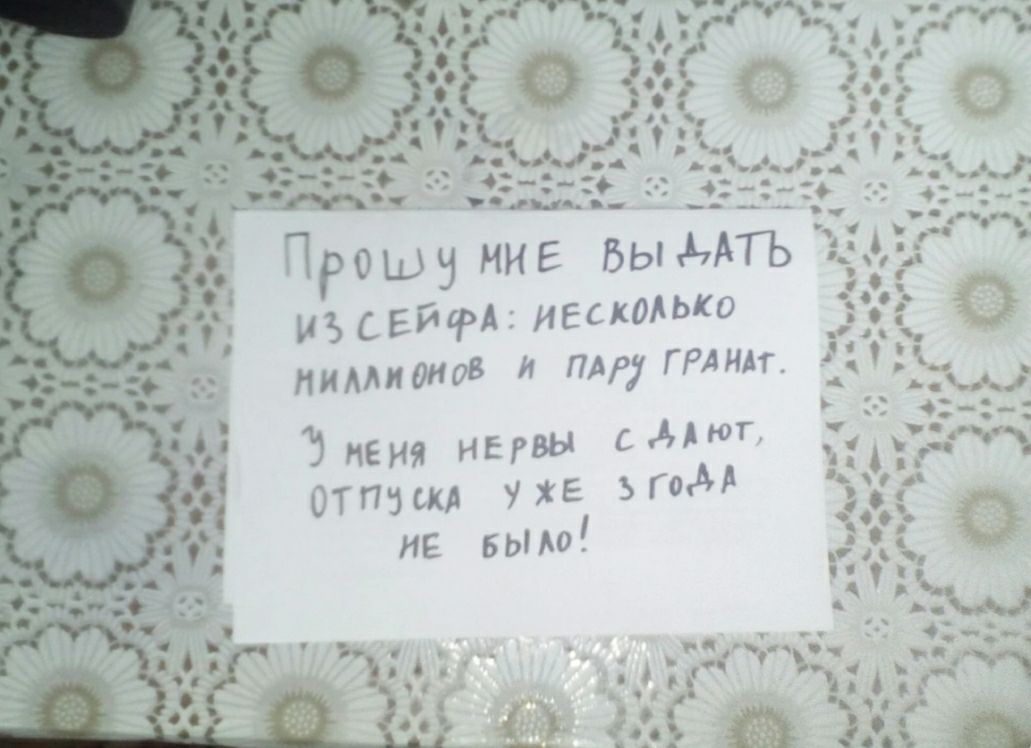 Прошу мне выдать
из сейфа: несколько
миллионов и пару гранат.
У меня нервы сдают,
отпуска уже 3 года
не было!